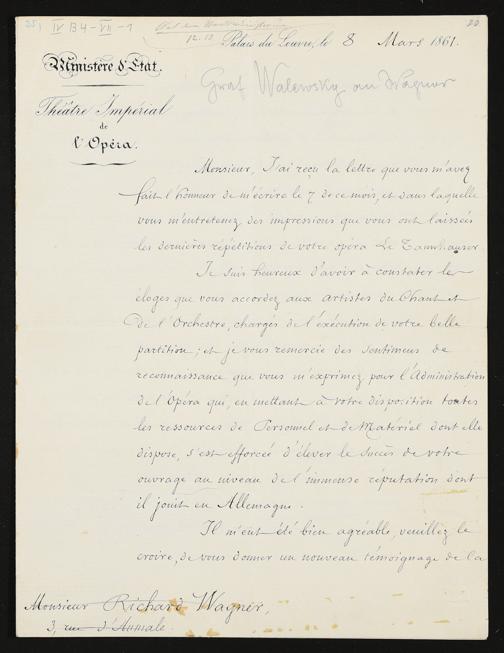 IV B4 - VII - 1
20
12.13
Palais du Louvre, le 8 Mars 1861.
Ministère d'Etat.
Graf Walewsky an Wagner
Théâtre Impérial
de
l'Opéra.
Monsieur, J'ai reçu la lettre que vous m'avez
fait l'honneur de m'écrire le 7 de ce mois, et dans laquelle
vous m'entretenez des impressions que vous ont laissées
les dernières répétitions de votre opéra Le Tannhauser
Je suis heureux d'avoir à constater les
éloges que vous accordez aux artistes du Chant et
de l'Orchestre, chargés de l'exécution de votre belle
partition; et je vous remercie des sentimens de
reconnaissance que vous m'exprimez pour l'Administration
de l'Opéra qui, en mettant à votre disposition toutes
les ressources de Personnel et de Matériel dont elle
dispose, s'est efforcée d'élever le succès de votre
ouvrage au niveau de l'immense réputation dont
il jouit en Allemagne.
Il m'eut été bien agréable, veuillez le
croire, de vous donner un nouveau témoignage de la
Monsieur Richard Wagner,
3, rue d'Aumale.